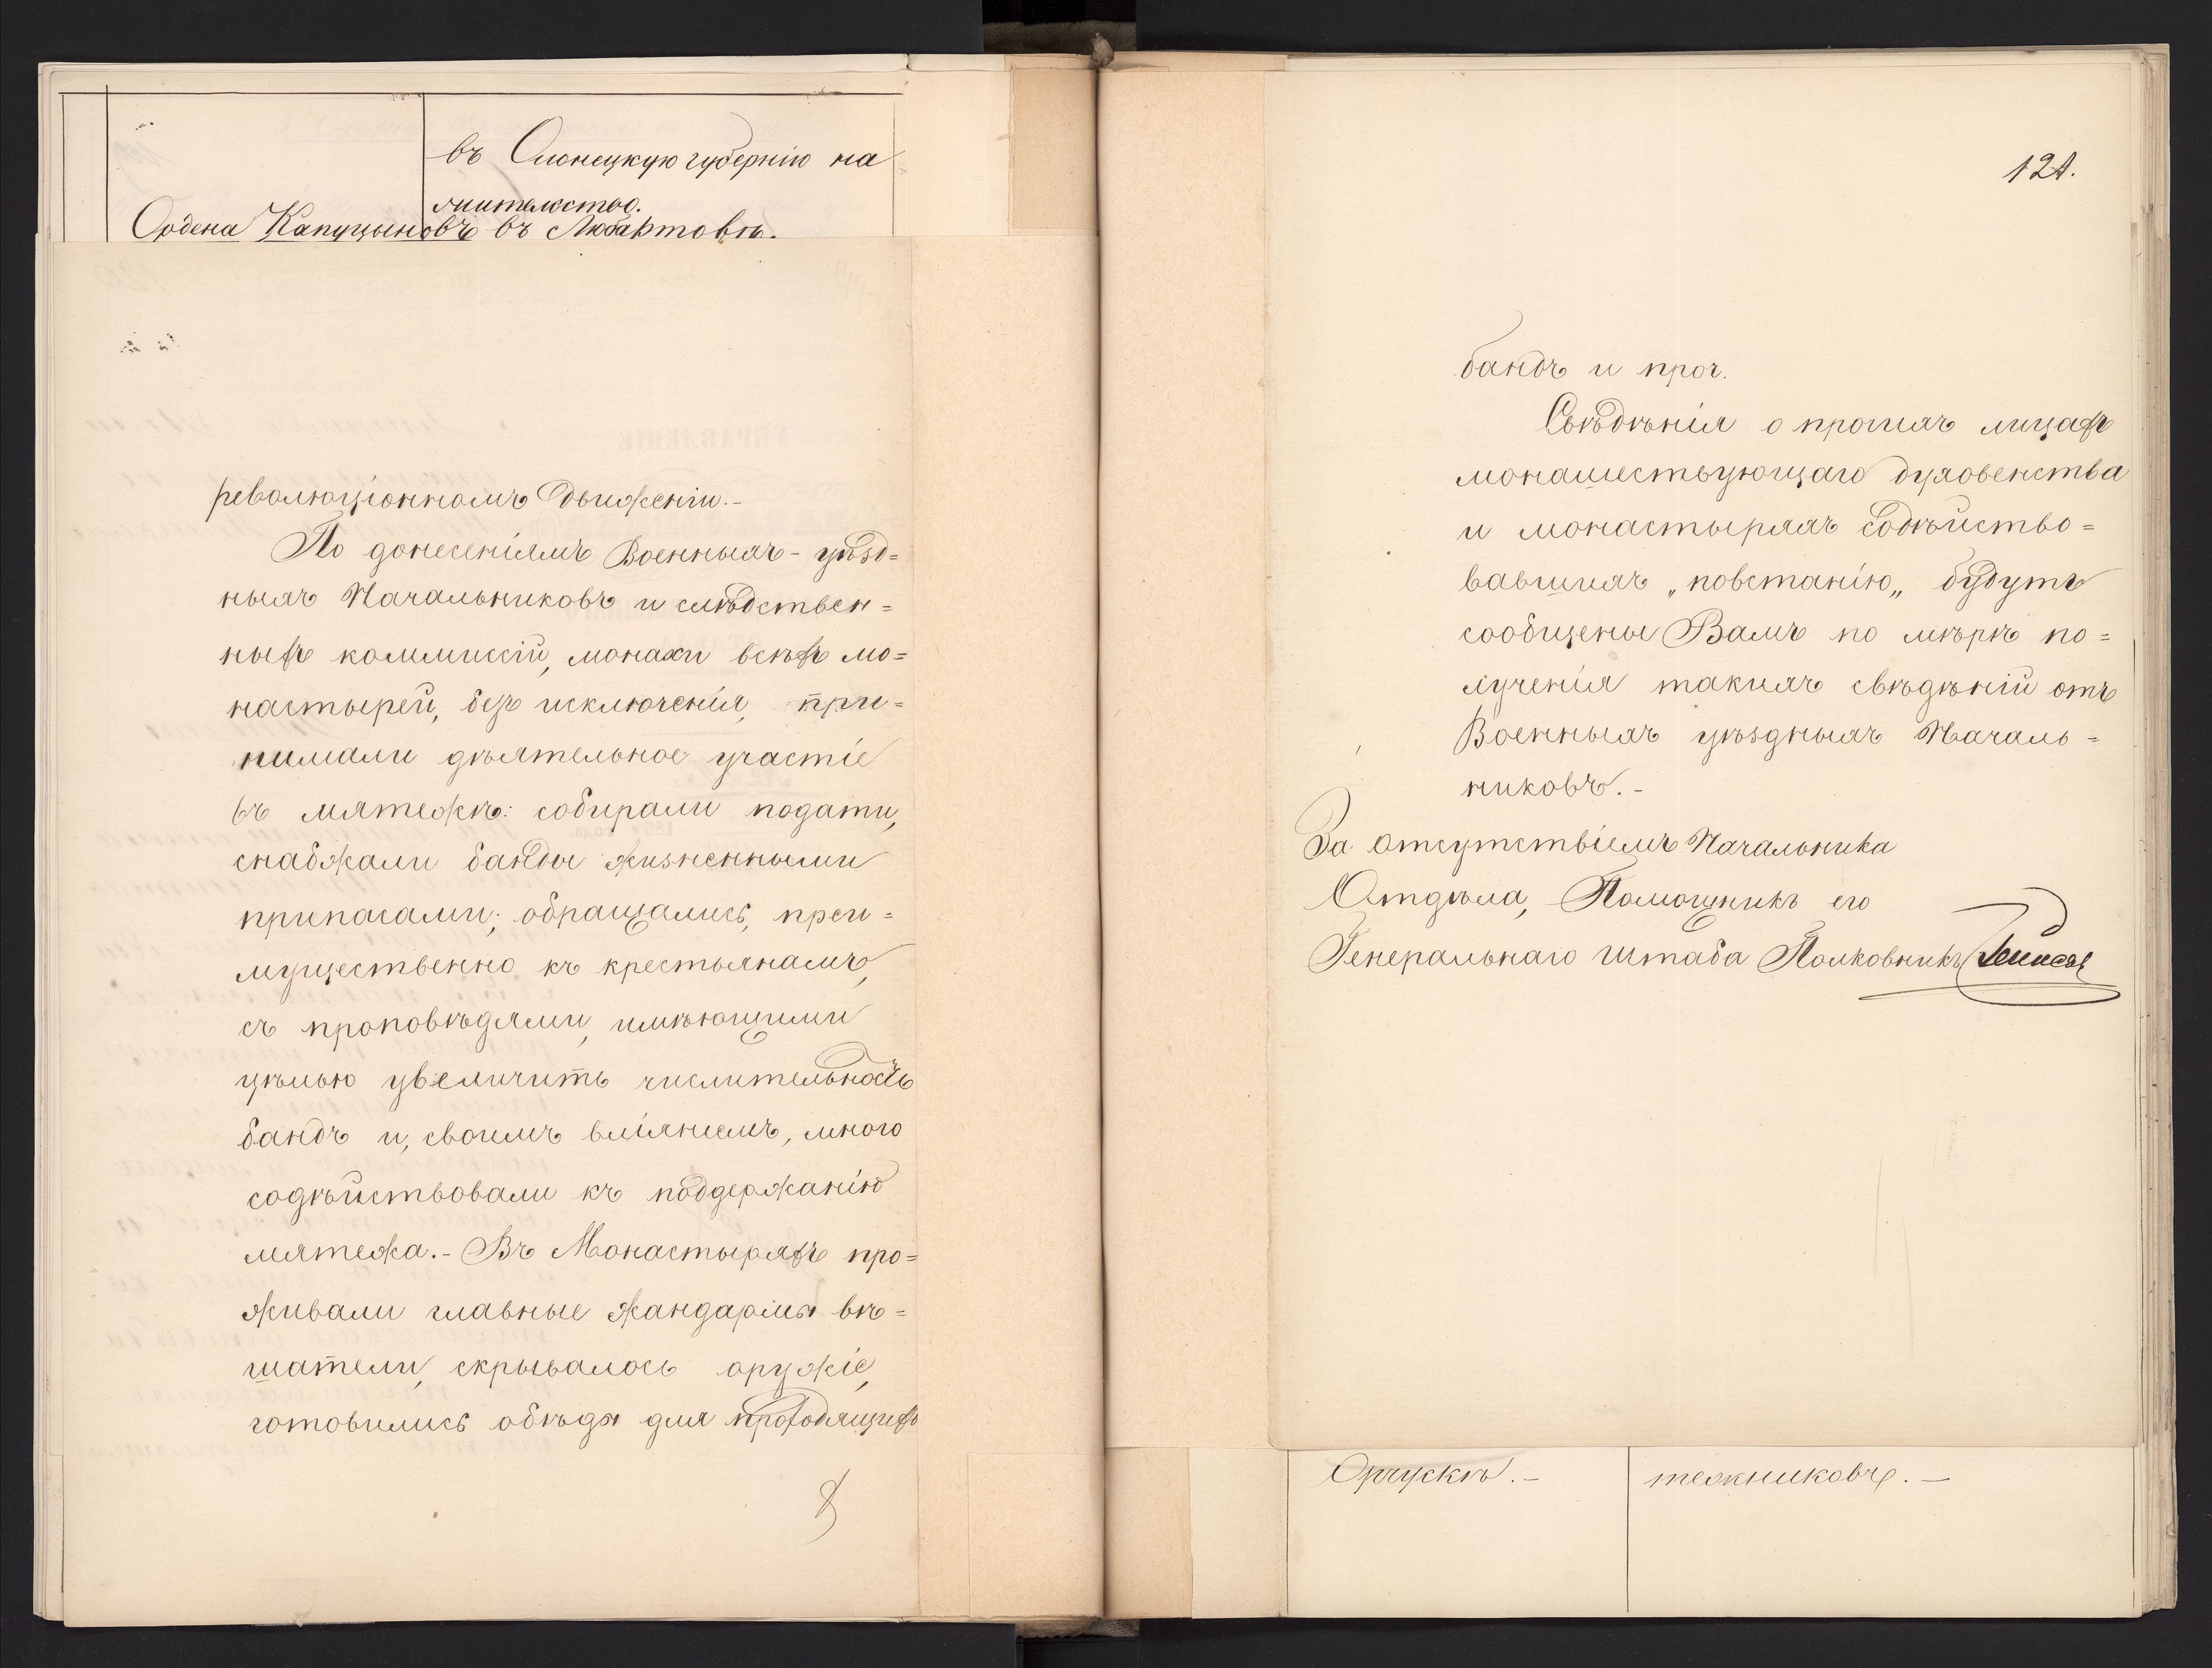 въ Олонецкую губернію на
жительство.
Ордена Капуциновъ въ Любартовѣ.
революціонномъ движеніи.-
По донесеніямъ Военныхъ-уѣзд=
ныхъ Начальниковъ и слѣдствен=
ныхъ коммиссій, монахи всѣхъ мо=
настырей, безъ исключенія, при=
нимали дѣятельное участіе
въ мятежѣ: собирали подати,
снабжали банды жизненными
припасами; обращались, преи=
мущественно къ крестьянамъ,
съ проповѣдями, имѣющими
цѣлью увеличить числительность
бандъ и, своимъ вліяніемъ, много
содѣйствовали къ поддержанію
мятежа.- Въ Монастыряхъ про=
живали главные жандармы вѣ=
шатели, скрывалось оружіе,
готовились обѣды для проходящихъ
121.
бандъ и проч.
Свѣдѣнія о прочихъ лицахъ
монашествующаго духовенства
и монастыряхъ содѣйство=
вавшихъ „повстанію„ будутъ
сообщены Вамъ по мѣрѣ по=
лученія такихъ свѣдѣній отъ
Военныхъ уѣздныхъ Началь=
никовъ.-
За отсутствіемъ Начальника
Отдѣла, Помощникъ его
Генеральнаго Штаба Полковникъ
тежниковъ.—